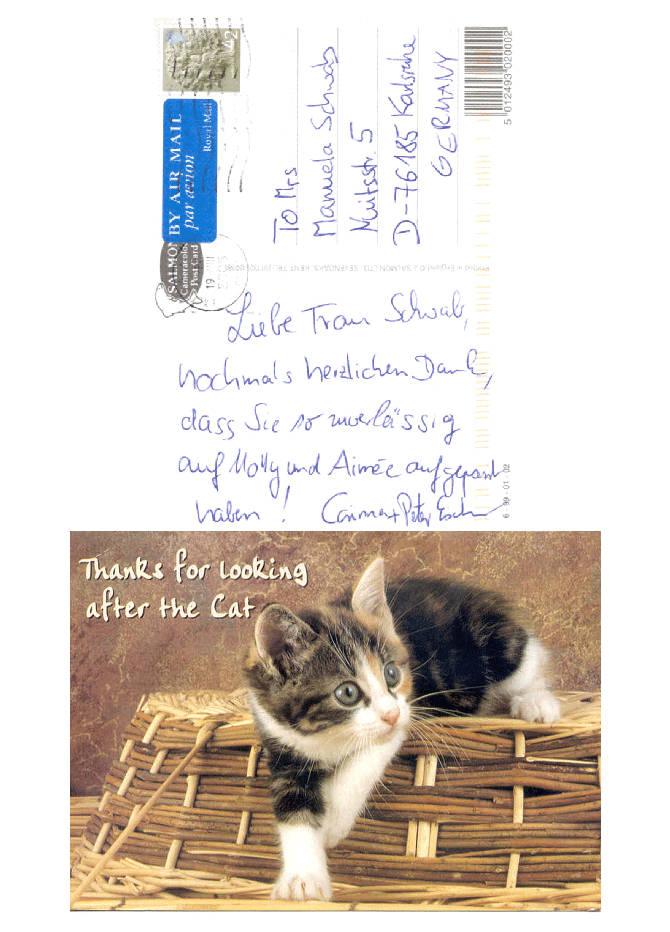 42
BY AIR MAIL
par avion
Royal Mail
SALMON
Cameracolour
Post Card
19
To Mrs
Manuela Schwab
Nuitsstr. 5
D-76185 Karlsruhe
GERMANY
5 012493 020002
Liebe Frau Schwab,
nochmals herzlichen Dank,
dass Sie so zuverlässig
auf Molly und Aimée aufgepasst
haben! Corinna + Peter
6-99-01-02
Thanks for looking
after the Cat